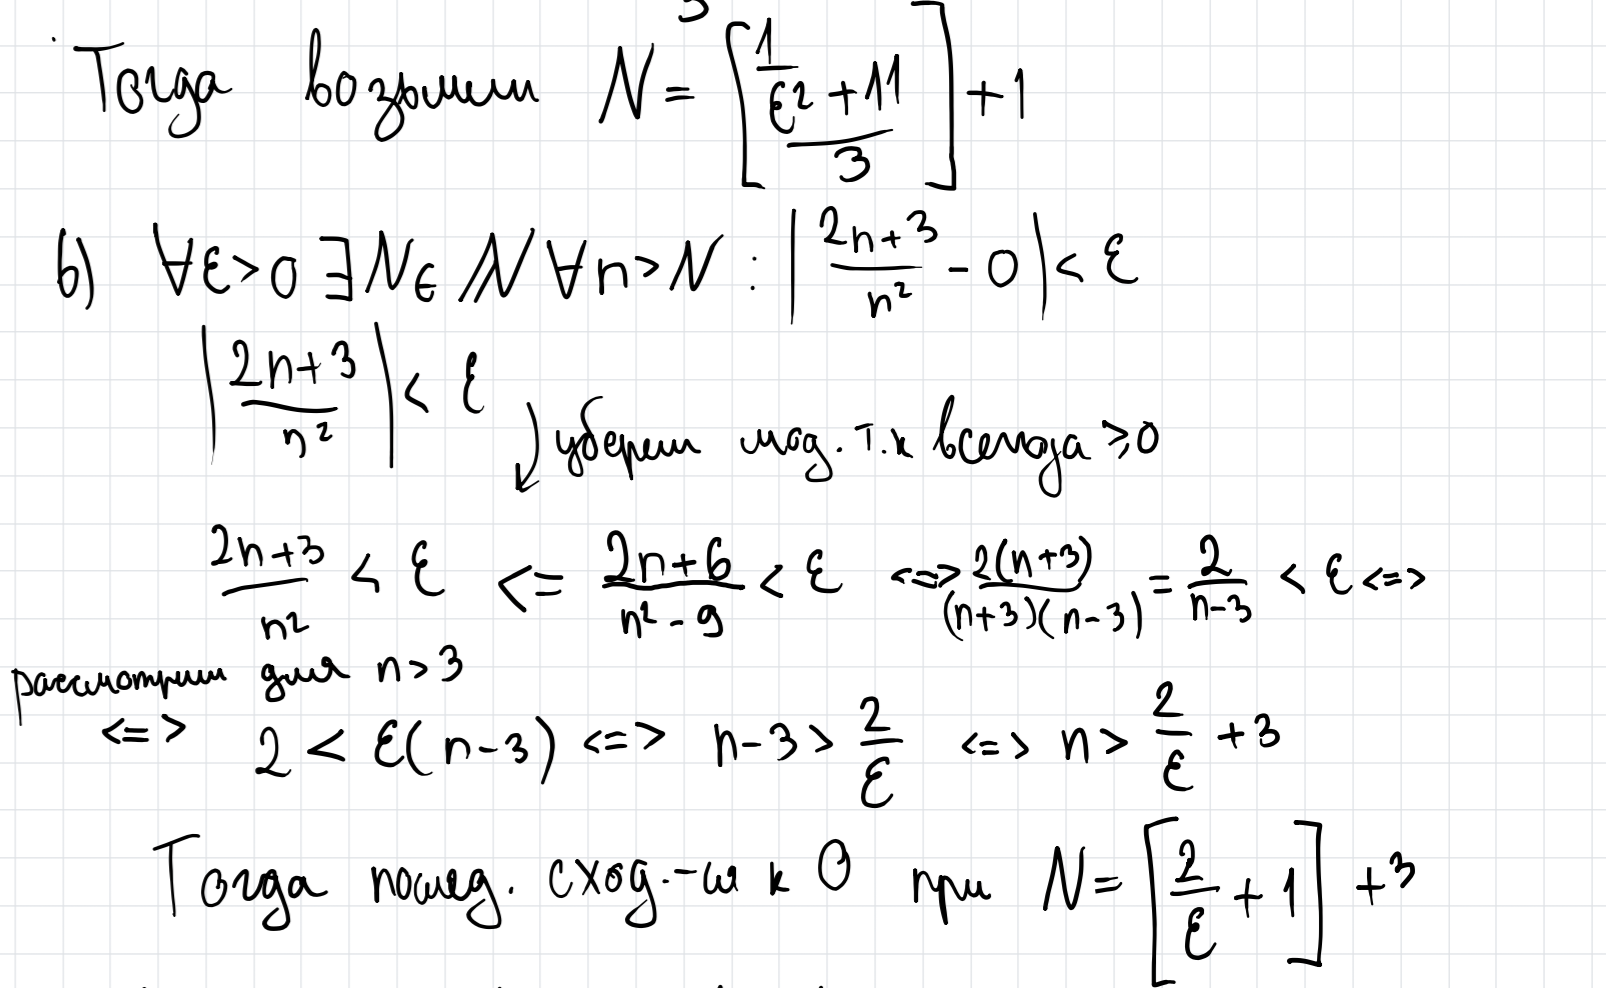 Тогда возьмем N = [(1/ε² + 11)/3] + 1
b) ∀ε>0 ∃N∈ℕ ∀n>N : |(2n+3)/n² - 0| < ε
|(2n+3)/n²| < ε
уберем мод. т.к всегда ≥0
(2n+3)/n² < ε <= (2n+6)/(n²-9) < ε <=> 2(n+3)/((n+3)(n-3)) = 2/(n-3) < ε <=>
рассмотрим для n>3
<=> 2 < ε(n-3) <=> n-3 > 2/ε <=> n > 2/ε + 3
Тогда послед. сход.-ся к 0 при N = [2/ε + 1] + 3